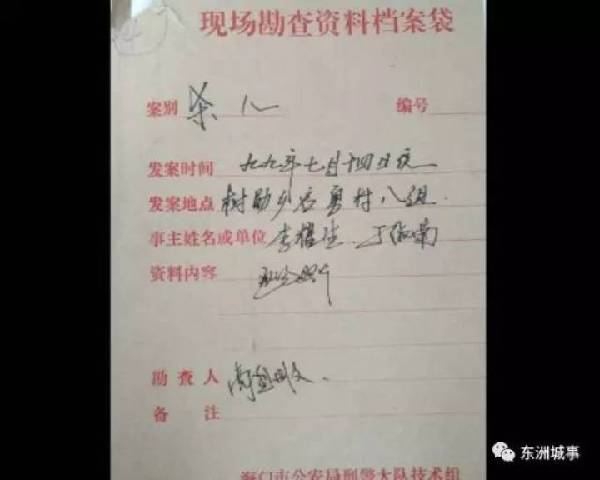 现场勘查资料档案袋
案别 杀人 编号
发案时间 九九年七月十四日夜
发案地点 树勋乡 村八组
事主姓名或单位 李 丁
资料内容
勘查人
备注
海门市公安局刑警大队技术组
东洲城事